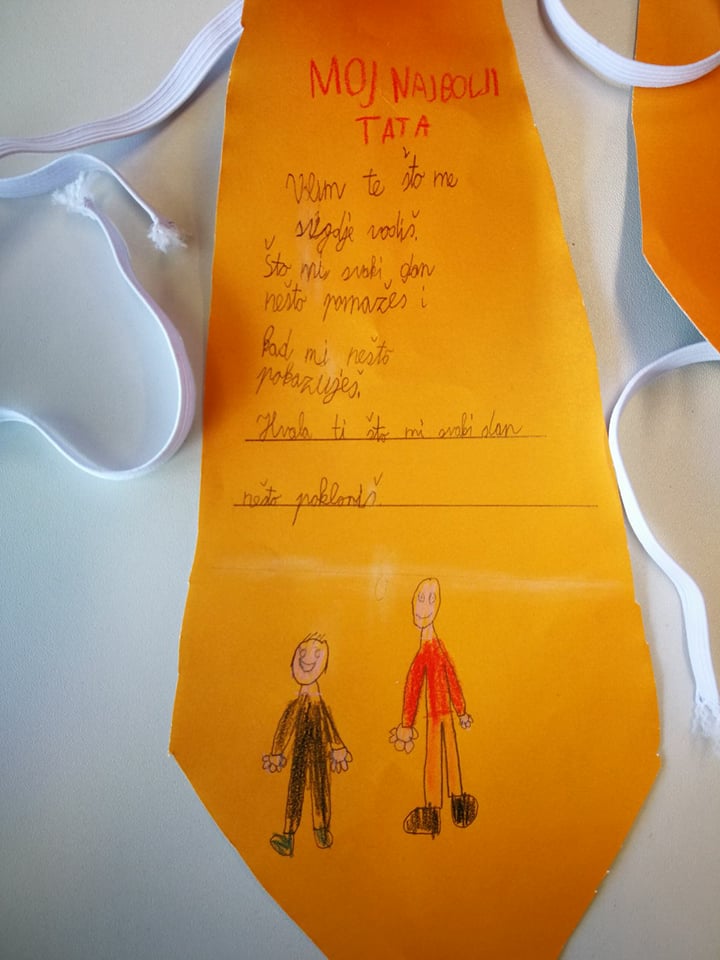 MOJ NAJBOLJI
TATA
Volim te što me
svigdje vodiš.
Što mi svaki dan
nešto pomažeš i
kad mi nešto
pokazuješ.
Hvala ti što mi svaki dan
nešto pokloniš.